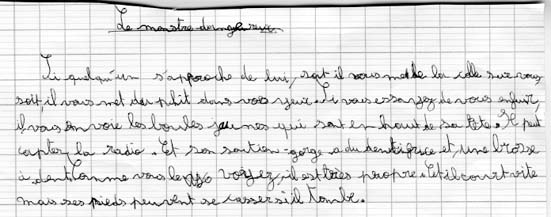 Le monstre dangereux
Si quelqu'un s'approche de lui, soit il vous met de la colle sur vous
soit, il vous met du phit dans vos yeux. Si vous essayez de vous enfuir,
il vous en voie les boules jaunes qui sont en haut de sa tête. Il peut
capter la radio. Et son soutien-gorge a du dentifrice et, une brosse
à dent Comme vous le voyez, il est très propre. Et il court vite
mais ses pieds peuvent se casser si il tombe.